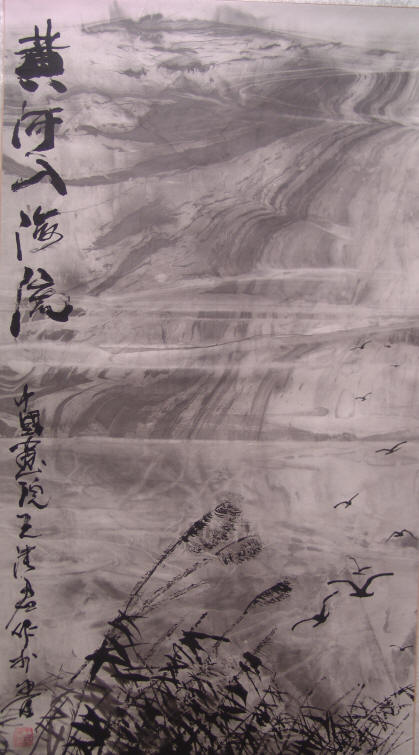 黄河入海流
中國画院王清君作於青